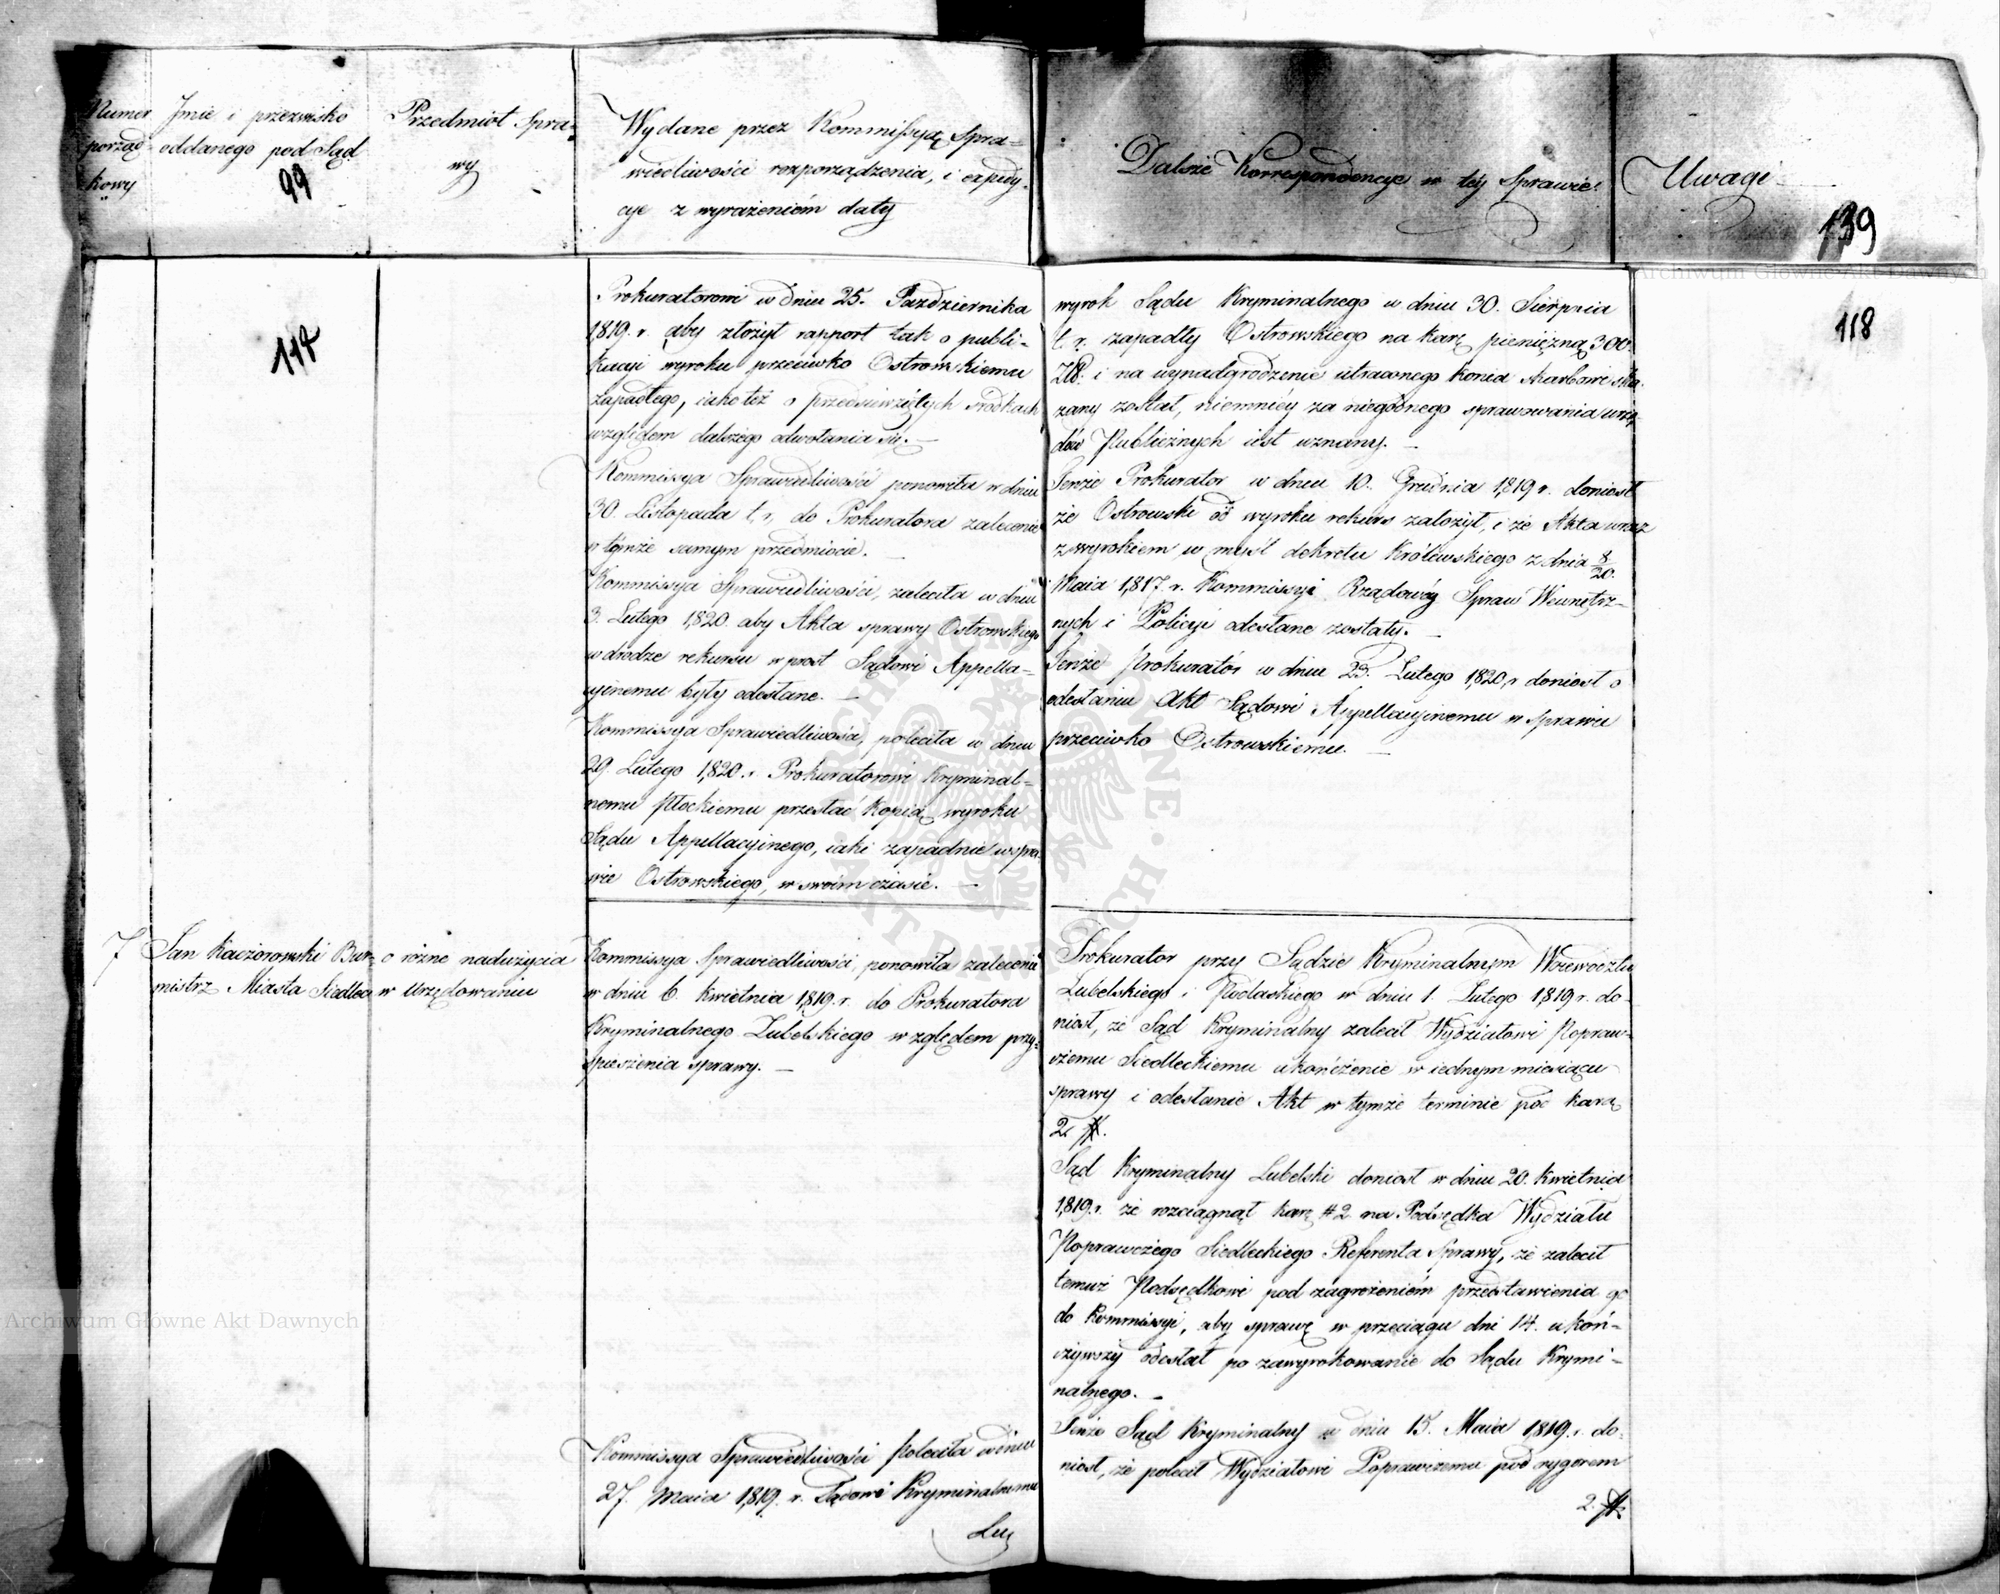 Numer
porząd-
kowy
Jmie i przezwisko
oddanego pod Sąd
99
Przedmiot Spra-
wy
Wydane przez Kommissyą Spra-
wiedliwości rozporządzenia, i expedy-
cye z wyrażeniem daty
Dalsze Korrespondencye w tey Sprawie.
Uwagi
139
Archiwum Główne Akt Dawnych
118
Prokuratorowi w dniu 25. Pazdziernika
1819. r. aby złożył rapport tak o publi-
kacyi wyroku przeciwko Ostrowskiemu
zapadłego, iako też o przedsięwziętych srodkach
względem dalszego odwołania się. —
Kommissya Sprawiedliwości ponowiła w dniu
30. Listopada t. r. do Prokuratora zalecenie
w tymże samym przedmiocie. —
Kommissya Sprawiedliwości, zaleciła w dniu
3. Lutego 1820. aby Akta sprawy Ostrowskiego
w drodze rekursu wprost Sądowi Appella-
cyinemu były odesłane. —
Kommissya Sprawiedliwości, poleciła w dniu
29. Lutego 1820. r. Prokuratorowi Kryminal-
nemu Płockiemu przesłać Kopią wyroku
Sądu Appellacyinego, iaki zapadnie w spra-
wie Ostrowskiego, w swoim czasie. —
wyrok Sądu Kryminalnego w dniu 30. Sierpnia
t. r. zapadły Ostrowskiego na karę pieniężną 300.
Złp. i na wynadgrodzenie utraconego konia Skarbowi ska-
zany został, niemniey za niegodnego sprawowania urzę-
dów Publicznych iest uznany. —
Tenże Prokurator w dniu 10. Grudnia 1819 r. doniosł
że Ostrowski od wyroku rekurs założył, i że Akta wraz
z wyrokiem w mysl dekretu Królewskiego z dnia 8/20.
Maia 1817. r. Kommissyi Rządowéy Spraw Wewnętrz-
nych i Policyi odesłane zostały. —
Tenże Prokurator w dniu 23. Lutego 1820. r doniosł o
odesłaniu Akt Sądowi Appellacyinemu w sprawie
przeciwko Ostrowskiemu. —
7
Jan Kaczorowski Bur-
mistrz Miasta Siedlec
o różne nadużycia
w Urzędowaniu
Kommissya Sprawiedliwości, ponowiła zalecenie
w dniu 6. Kwietnia 1819. r. do Prokuratora
Kryminalnego Lubelskiego względem przy-
spieszenia sprawy. —
Kommissya Sprawiedliwości poleciła w dniu
27. Maia 1819. r. Sądowi Kryminalnemu
Lu
Prokurator przy Sądzie Kryminalnym Woiewództw
Lubelskiego i Podlaskiego w dniu 1. Lutego 1819 r. do-
niosł, że Sąd Kryminalny zalecił Wydziałowi Popraw-
czemu Siedleckiemu ukończenie w iednym miesiącu
sprawy i odesłanie Akt w tymże terminie pod karą
2.
Sąd Kryminalny Lubelski doniosł w dniu 20. Kwietnia
1819. r. że rozciągnął karę # 2 na Podsędka Wydziału
Poprawczego Siedleckiego Referenta Sprawy, że zalecił
temuż Podsędkowi pod zagrożeniem przedstawienia go
do Kommissyi, aby sprawę w przeciągu dni 14. ukoń-
czywszy odesłał po zawyrokowanie do Sądu Krymi-
nalnego. —
Tenże Sąd Kryminalny w dniu 15. Maia 1819. r. do-
niosł, że polecił Wydziałowi Poprawczemu pod rygorem
2.
Archiwum Główne Akt Dawnych